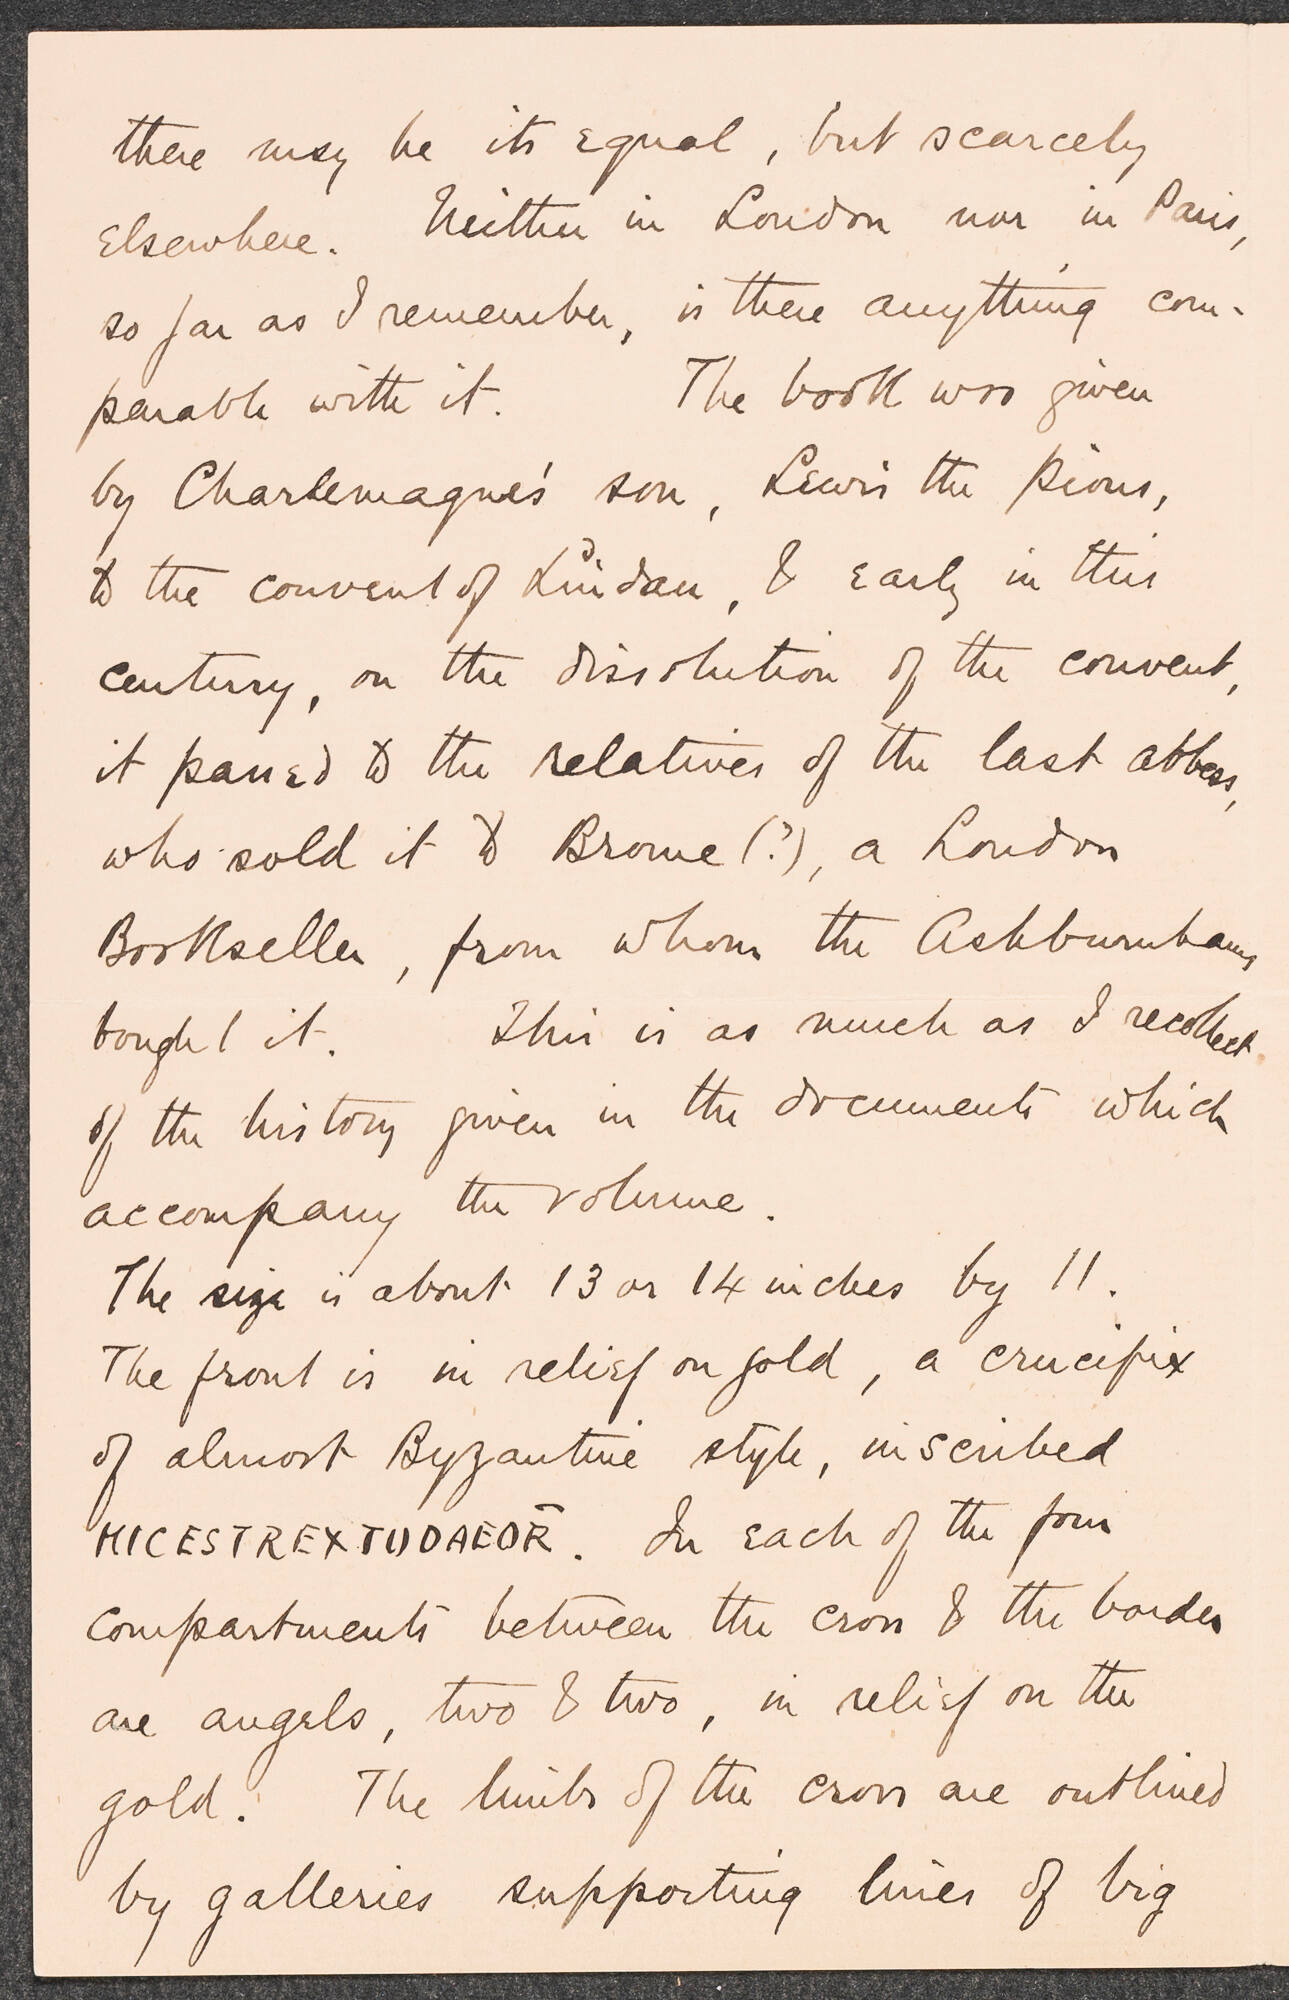 there may be its equal, but scarcely
elsewhere. Neither in London nor in Paris,
so far as I remember, is there anything com-
parable with it. The book was given
by Charlemagne's son, Lewis the Pious,
to the convent of Lindau, & early in this
century, on the dissolution of the convent,
it passed to the relatives of the last abbess,
who sold it to Brome (?), a London
Bookseller, from whom the Ashburnhams
bought it. This is as much as I recollect
of the history given in the documents which
accompany the volume.
The size is about 13 or 14 inches by 11.
The front is in relief on gold, a crucifix
of almost Byzantine style, inscribed
HICESTREXTUDAEOR̄. In each of the four
compartments between the cross & the border
are angels, two & two, in relief on the
gold. The limbs of the cross are outlined
by galleries supporting lines of big